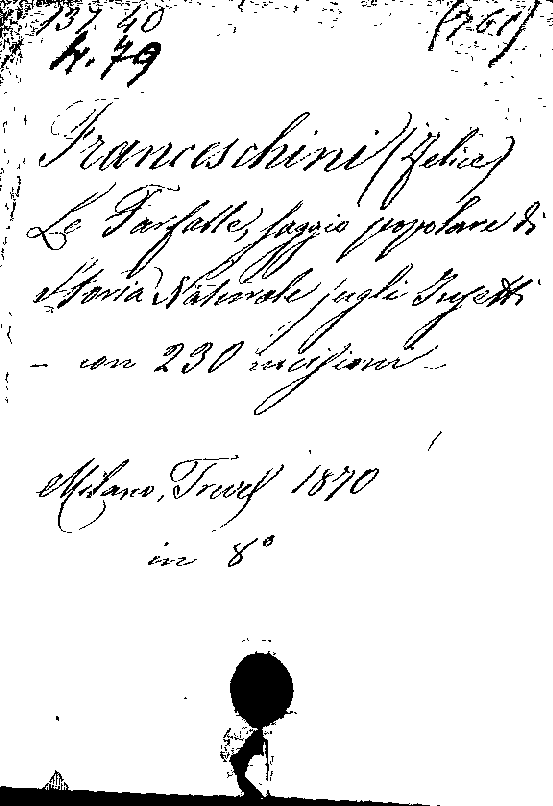 137 40
4.79
(761)
Franceschini (Felice)
Le Farfalle, saggio popolare di
Storia Naturale sugli Insetti
- con 230 incisioni -
Milano, Treves 1870
in 8°